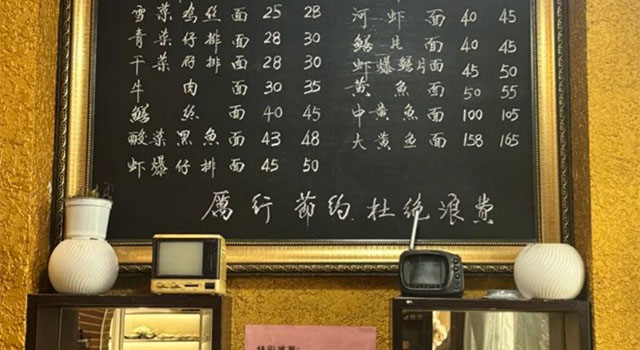 雪菜鸡丝面 25 28
青菜仔排面 28 30
干菜仔排面 28 30
牛肉面 30 35
鳝丝面 40 45
酸菜黑鱼面 43 48
虾爆仔排面 45 50
河虾面 40 45
鳝 面 40 45
虾爆鳝片面 45 50
黄鱼面 50 55
中黄鱼面 100 105
大黄鱼面 158 165
厲行節约 杜绝浪费